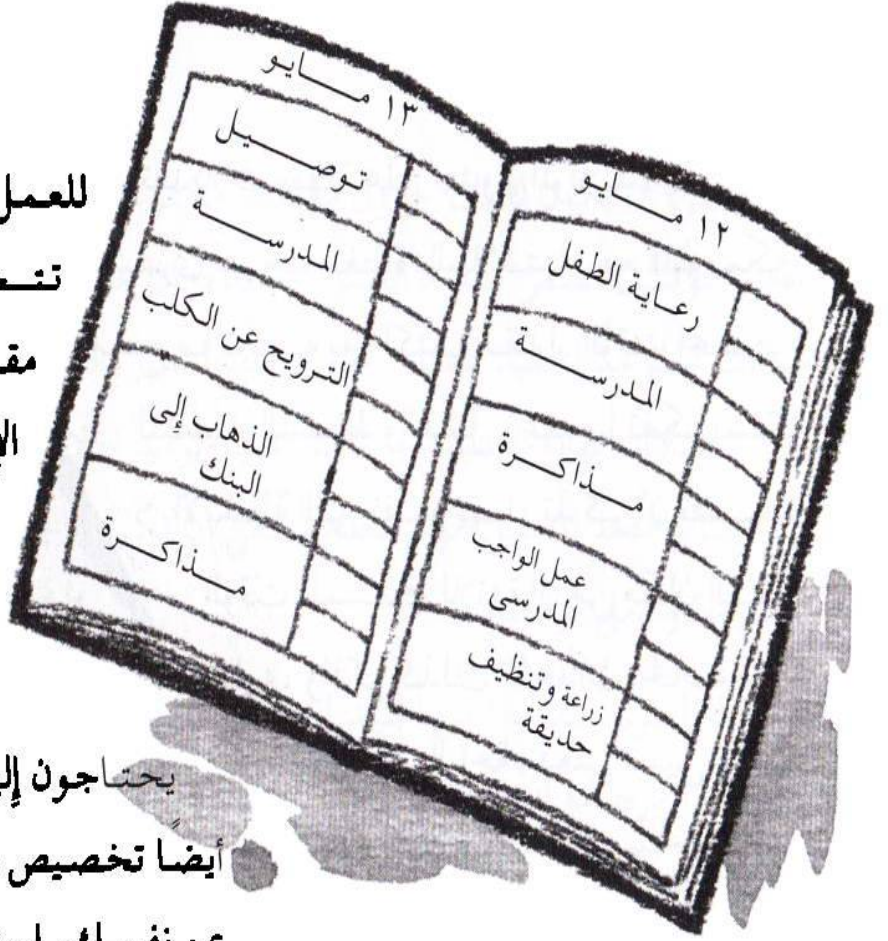 ١٢ مايو
رعاية الطفل
المدرسة
مذاكرة
عمل الواجب
المدرسى
زراعة وتنظيف
حديقة
١٣ مايو
توصيل
المدرسة
الترويح عن الكلب
الذهاب إلى
البنك
مذاكرة
للعمل
يحتاجون
أيضًا تخصيص